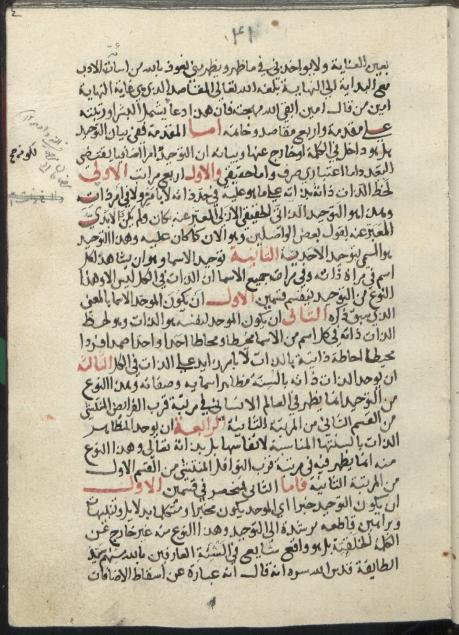 ٤١
بعين العناية ولا يواخذني في ما ظهر ويظهر مني نعوذ بالله من اساءة الادب
في البداية الى النهاية بلغه الله تعالى المقاصد الذي هي غاية النهاية
امين من قال امين ابقى الله مهجته فان هذا دعاء يشمل البشر ورتبته
على مقدمة واربع مقاصد وخاتمة اما المقدمة ففي بيان التوحيد
هل هو داخل في الكلمة او خارج عنها وبيانه ان التوحيد اما اضافيا يقتضي
التعدد واما اعتباري صرف واما حقيقي والاول اربع مراتب الاولى
لحظ الذات ذاته بذاته على ما هو عليه في حد ذاته لا بامر ولا في امر ذات
وهذا هو التوحيد الذاتي الحقيقي الازلي المعبر عنه كان ولم يكن الابدي
المعبر عنه لقول بعض الواصلين وهو الان كما كان عليه وهذا التوحيد
هو المسمى بتوحيد الاحدية الثانية توحيد الاسماء وهو ان يشاهد كل
اسم في مراة ذاته وفي مرات جميع الاسماء ان الذات في الكل ليس الا وهذا
النوع من التوحيد ينقسم قسمين الاول ان يكون الموحد الاسماء بالمعنى
الذي سبق ذكره الثاني ان يكون الموحد لنفسه هو الذات وهو لحظ
الذات ذاته في كل اسم من الاسماء محيطا ومحاطا احدا واحدا صمدا فردا
محيطا احاطة ذاتية بالذات لا بامر زايد على الذات في الكل الثالثة
ان يوحد الذات ذاته بالسنة مظاهر اسمايه وصفاته وهذا النوع
من التوحيد انما يظهر في العالم الانساني في مرتبة قرب الفرايض المنتشى
من القسم الثاني من المرتبة الثانية الرابعة ان يوحد المظاهر
الذات بالسنتها المناسبة لانفاسها بل بذاته تعالى وهذا النوع
منه انما يظهر فيه في مرتبة قرب النوافل المنتشى من القسم الاول
من المرتبة الثانية فاما الثاني فينحصر في قسمين الاول
ان يكون التوحيد خبرا اي الموحد يكون مخبرا ومتكلما بدلايل ونقلياتها
وبراهين قاطعه مرشدة الى التوحيد وهذا النوع منه غير خارج عن
الكلمة الخلقية بل هو واقع شايع في السنة العارفين بالله سيد
الطايفة قدس الله سره انه قال انه عبارة عن اسقاط الاضافات